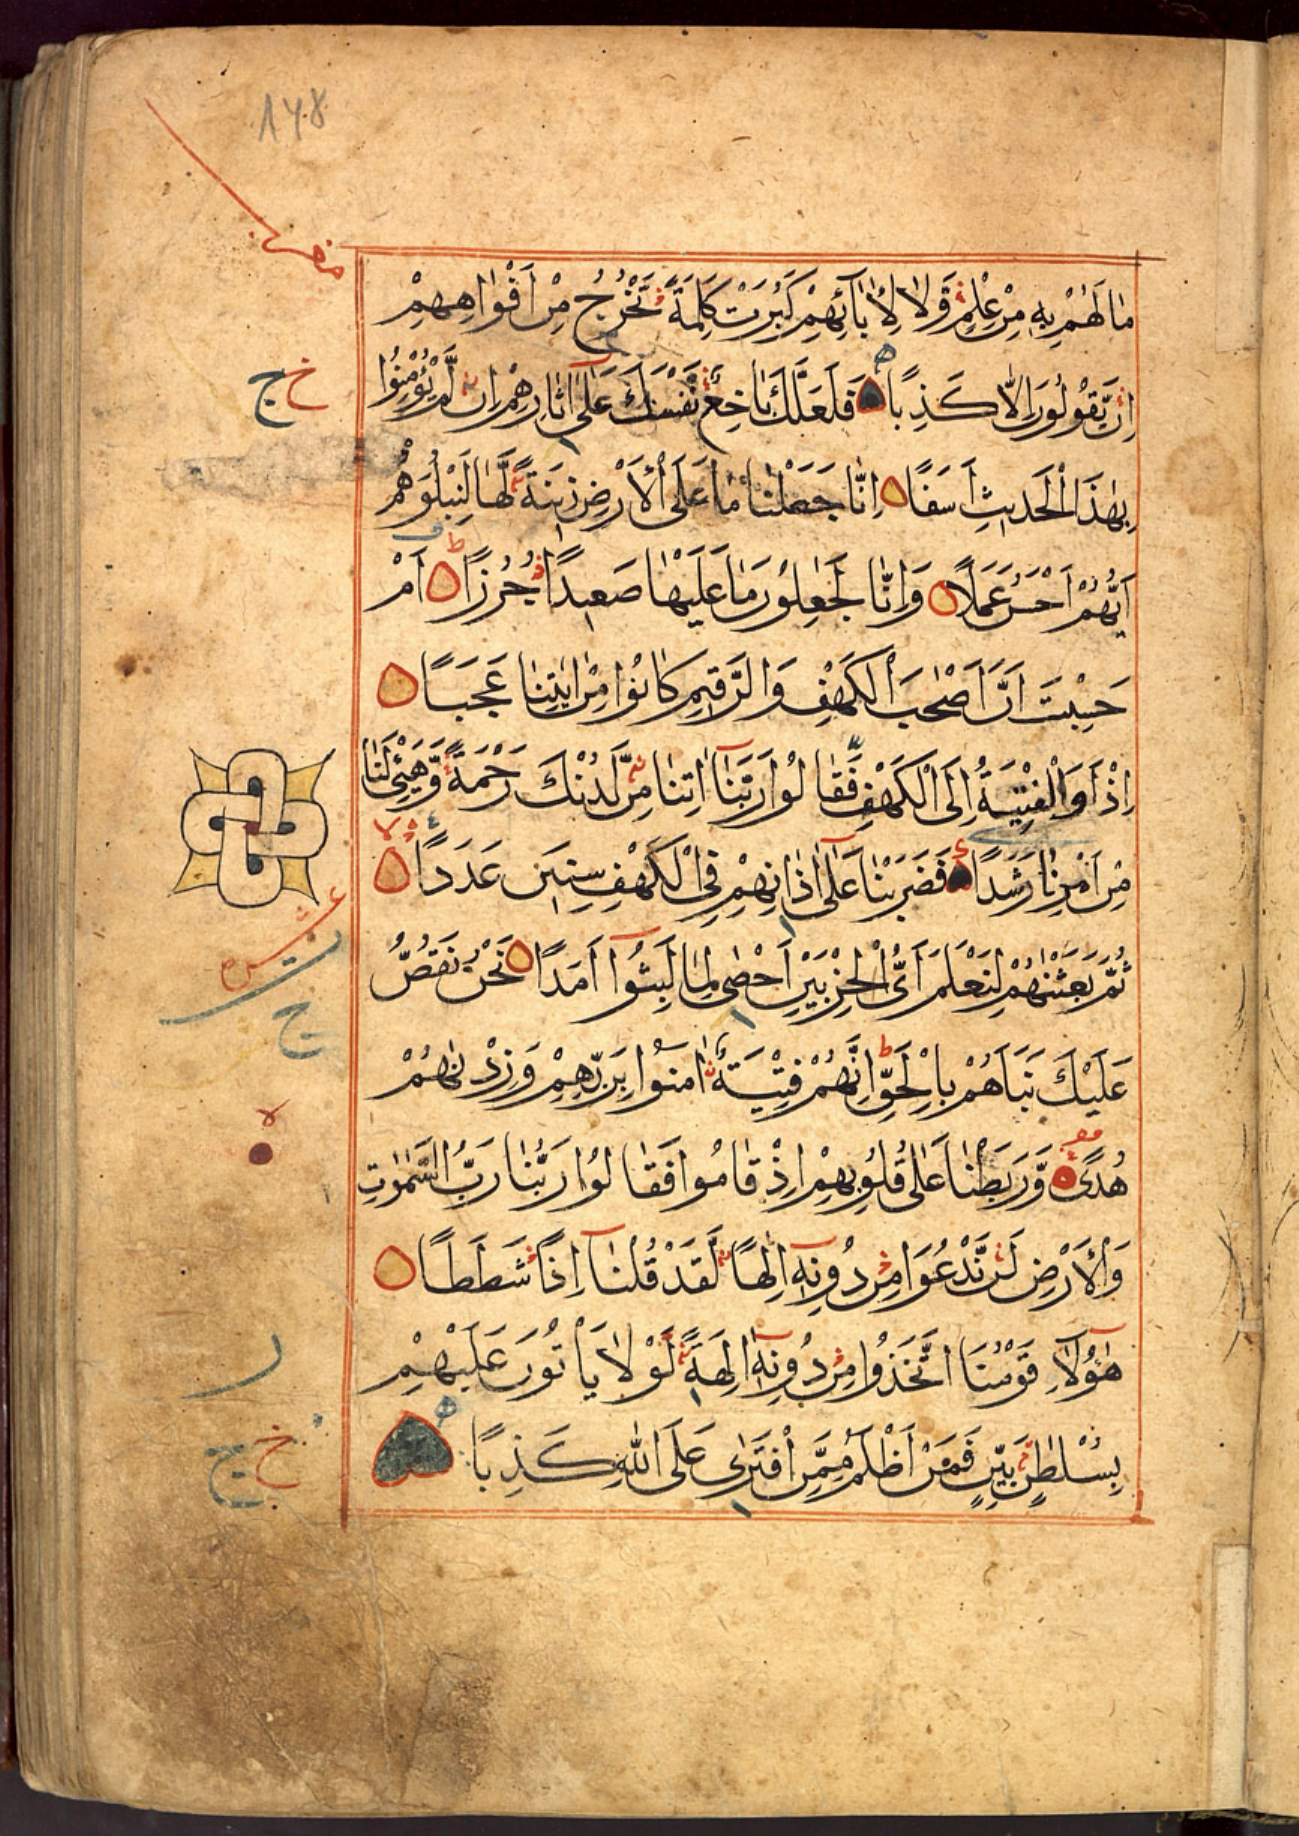 ١٧٨
مَا لَهُمْ بِهِ مِنْ عِلْمٍ وَّلَا لِاٰبَآئِهِمْ كَبُرَتْ كَلِمَةً تَخْرُجُ مِنْ اَفْوَاهِهِمْ
اِنْ يَّقُوْلُوْنَ اِلَّا كَذِبًا فَلَعَلَّكَ بَاخِعٌ نَّفْسَكَ عَلٰٓى اٰثَارِهِمْ اِنْ لَّمْ يُؤْمِنُوْا
خ ج
بِهٰذَا الْحَدِيْثِ اَسَفًا اِنَّا جَعَلْنَا مَا عَلَى الْاَرْضِ زِيْنَةً لَّهَا لِنَبْلُوَهُمْ
اَيُّهُمْ اَحْسَنُ عَمَلًا وَاِنَّا لَجٰعِلُوْنَ مَا عَلَيْهَا صَعِيْدًا جُرُزًا اَمْ
حَسِبْتَ اَنَّ اَصْحٰبَ الْكَهْفِ وَالرَّقِيْمِ كَانُوْا مِنْ اٰيٰتِنَا عَجَبًا
اِذْ اَوَى الْفِتْيَةُ اِلَى الْكَهْفِ فَقَالُوْا رَبَّنَآ اٰتِنَا مِنْ لَّدُنْكَ رَحْمَةً وَّهَيِّئْ لَنَا
مِنْ اَمْرِنَا رَشَدًا فَضَرَبْنَا عَلٰٓى اٰذَانِهِمْ فِى الْكَهْفِ سِنِيْنَ عَدَدًا
ثُمَّ بَعَثْنٰهُمْ لِنَعْلَمَ اَىُّ الْحِزْبَيْنِ اَحْصٰى لِمَا لَبِثُوْٓا اَمَدًا نَحْنُ نَقُصُّ
عَلَيْكَ نَبَاَهُمْ بِالْحَقِّ اِنَّهُمْ فِتْيَةٌ اٰمَنُوْا بِرَبِّهِمْ وَزِدْنٰهُمْ
هُدًى وَّرَبَطْنَا عَلٰى قُلُوْبِهِمْ اِذْ قَامُوْا فَقَالُوْا رَبُّنَا رَبُّ السَّمٰوٰتِ
وَالْاَرْضِ لَنْ نَّدْعُوَا مِنْ دُوْنِهٖٓ اِلٰهًا لَّقَدْ قُلْنَآ اِذًا شَطَطًا
هٰٓؤُلَآءِ قَوْمُنَا اتَّخَذُوْا مِنْ دُوْنِهٖٓ اٰلِهَةً لَّوْلَا يَاْتُوْنَ عَلَيْهِمْ
بِسُلْطٰنٍ بَيِّنٍ فَمَنْ اَظْلَمُ مِمَّنِ افْتَرٰى عَلَى اللّٰهِ كَذِبًا
خ ج